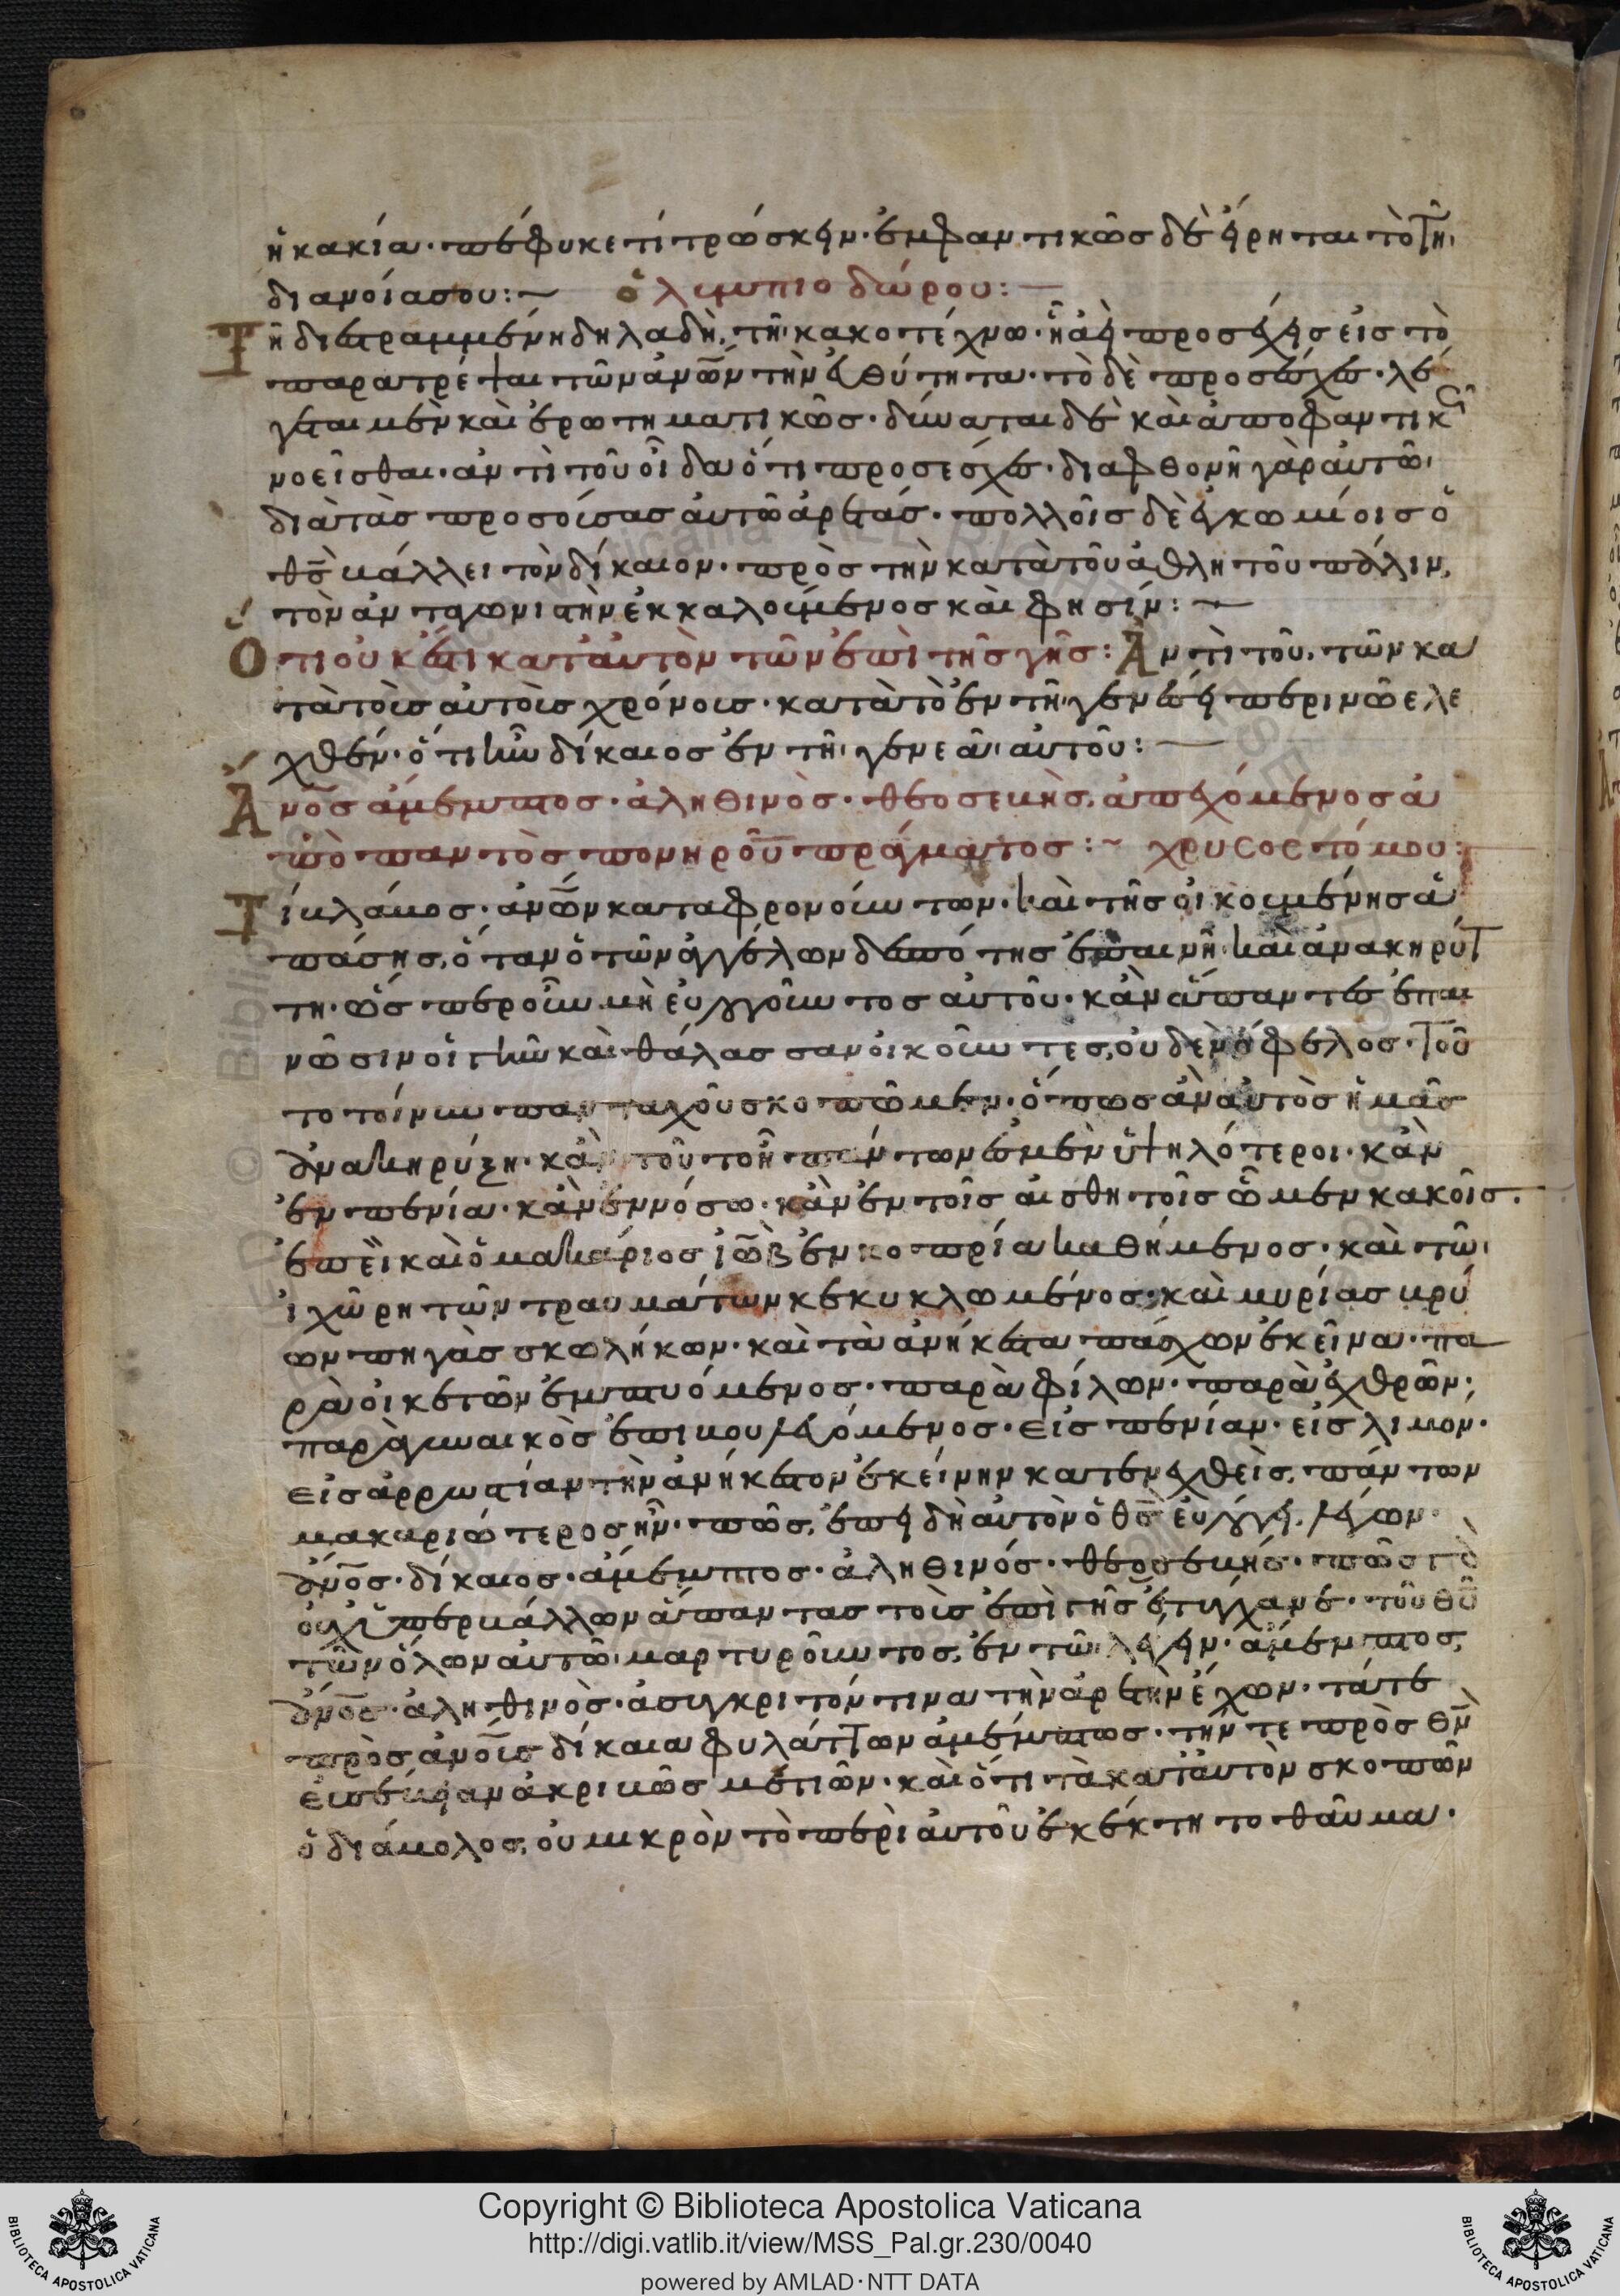 ἡ κακία· πέφυκε τιτρώσκειν· ἐμφαντικῶς δὲ εἴρηται τὸ τῆ
διανοίασου:~ ὀλυμπιοδώρου:—
Τῆ διεστραμμένη δηλαδὴ, τῆ κακοτέχνω· ἢ ἀεὶ προσέχεις εἰς τὸ
παρατρέψαι τῶν ἀνῶν τὴν εὐθύτητα· τὸ δὲ προσέσχες· λέ
γεται μὲν καὶ ἐρωτηματικῶς· δύναται δὲ καὶ ἀποφαντικῶς
νοεῖσθαι· ἀντὶ τοῦ οἶδα ὅτι προσέσχες· διαφθονῆ γὰρ αὐτῶ
διὰ τὰς προσούσας αὐτῶ ἀρετάς· πολλοῖς δὲ ἐγκωμίοις ὁ
θς βάλλει τὸν δίκαιον· πρὸς τὴν κατὰ τοῦ ἀθλητοῦ πάλιν,
τὸν ἀνταγωνιστὴν ἐκκαλούμενος καὶ φησίν:~
Ὅτι οὐκ ἔστι κατ' αὐτὸν τῶν ἐπὶ τῆς γῆς: Ἀντὶ τοῦ, τῶν κα
τὰ τοὺς αὐτοὺς χρόνους· κατὰ τὸ ἐν τῆ γενέσει περὶ νῶε λε
χθέν· ὅτι ἦν δίκαιος ἐν τῆ γενεᾶ αὐτοῦ:—
Ἄνος ἄμεμπτος· ἀληθινὸς· θεοσεβὴς, ἀπεχόμενος ἀ
πὸ παντὸς πονηροῦ πράγματος:~ χρυσοστόμου:
Τί βλάβος· ἀνῶν καταφρονούντων· καὶ τῆς οἰκουμένης ἁ
πάσης, ὅταν ὁ τῶν ἀγγέλων δεσπότης ἐπαινῆ καὶ ἀνακηρύτ
τη· ὥσπερ οὖν μὴ εὐφημοῦντος αὐτοῦ· κἂν ἅπαντες ἐπαι
νῶσιν οἱ γῆν καὶ θάλασσαν οἰκοῦντες, οὐδὲν ὄφελος· τοῦ
το τοίνυν πανταχοῦ σκοπῶμεν· ὅπως ἂν αὐτὸς ἡμᾶς
ἀνακηρύξη· κἂν τοῦτο ἦ πάντων ἐσμὲν ὑψηλότεροι· κἂν
ἐν πενία· κἂν ἐν νόσω· κἂν ἐν τοῖς αἰσθητοῖς ὦμεν κακοῖς.
ἐπεὶ καὶ ὁ μακάριος ἰὼβ ἐν κοπρία καθήμενος· καὶ τῶ
ἰχῶρι τῶν τραυμάτων κεκυκλωμένος· καὶ μυρίας βρύ
ων πηγὰς σκωλήκων· καὶ τὰ ἀνήκεστα πάσχων ἐκεῖνα· πα
ρὰ οἰκετῶν ἐμπτυόμενος· παρὰ φίλων· παρὰ ἐχθρῶν·
παρὰ γυναικὸς ἐπιβουλευόμενος· εἰς πενίαν· εἰς λιμόν·
εἰς ἀρρωστίαν τὴν ἀνήκεστον ἐκείνην κατενεχθεὶς, πάντων
μακαριώτερος ἦν· πῶς, ἐπειδὴ αὐτὸν ὁ θς λέγων·
ἄνος· δίκαιος· ἄμεμπτος· ἀληθινός· θεοσεβής· πῶς γὰρ
οὐχ ὑπερβάλλων ἅπαντας τοὺς ἐπὶ γῆς ἐτύγχανε· τοῦ θυ
τῶν ὅλων αὐτῶ μαρτυροῦντος, ἐν τῶ λέγειν· ἄμεμπτος,
ἄνος· ἀληθινὸς· ἀσύγκριτόν τινα τὴν ἀρετὴν ἔχων· τά τε
πρὸς ἀνους δίκαια φυλάττων ἀμέμπτως· τήν τε πρὸς θν
εὐσέβειαν ἀκριβῶς μετιῶν· καὶ ὅτι τὰ κατ' αὐτὸν σκοπῶν
ὁ διάβολος, οὐ μικρὸν τὸ περὶ αὐτοῦ ἐκέκτητο θαῦμα·
Copyright © Biblioteca Apostolica Vaticana
http://digi.vatlib.it/view/MSS_Pal.gr.230/0040
powered by AMLAD·NTT DATA
BIBLIOTECA APOSTOLICA VATICANA
BIBLIOTECA APOSTOLICA VATICANA